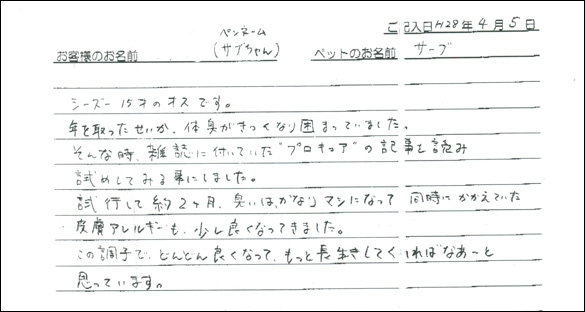 ペンネーム
ご記入日H28年4月5日
お客様のお名前 (サブちゃん) ペットのお名前 サーブ
シーズー 15才のオスです。
年を取ったせいか、体臭がきつくなり困まっていました。
そんな時、雑誌に付いていた"プロキュア"の記事を読み
試めしてみる事にしました。
試行して約2ヶ月、臭いは、かなりマシになって 同時にかかえていた
皮膚アレルギーも、少し良くなってきました。
この調子で、どんどん良くなって、もっと長生きしてくればなあーと
思っています。